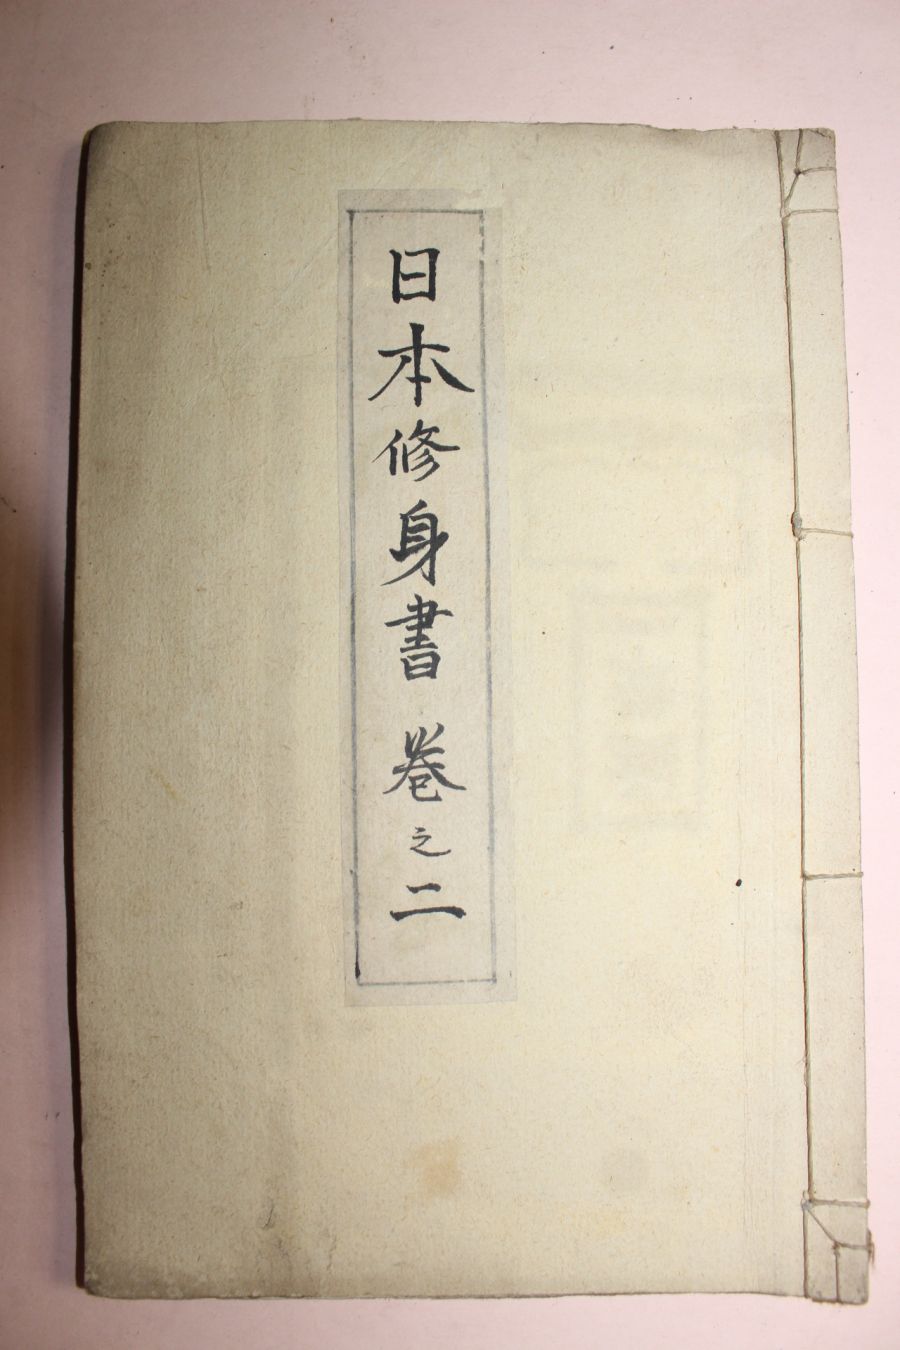 日本修身書 巻之二